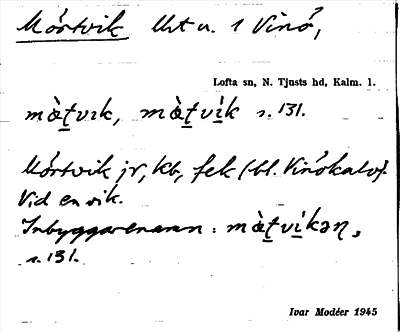 Mörtvik Urt u. 1 Vinö,
Lofta sn, N. Tjusts hd, Kalm. l.
màṯvɪk, màṯvìk s. 131.
Mörtvik jr, kb, fek (bl. Vinökalv).
Vid en vik.
Inbyggarenamn: màṯvìkən,
s. 131.
Ivar Modéer 1945